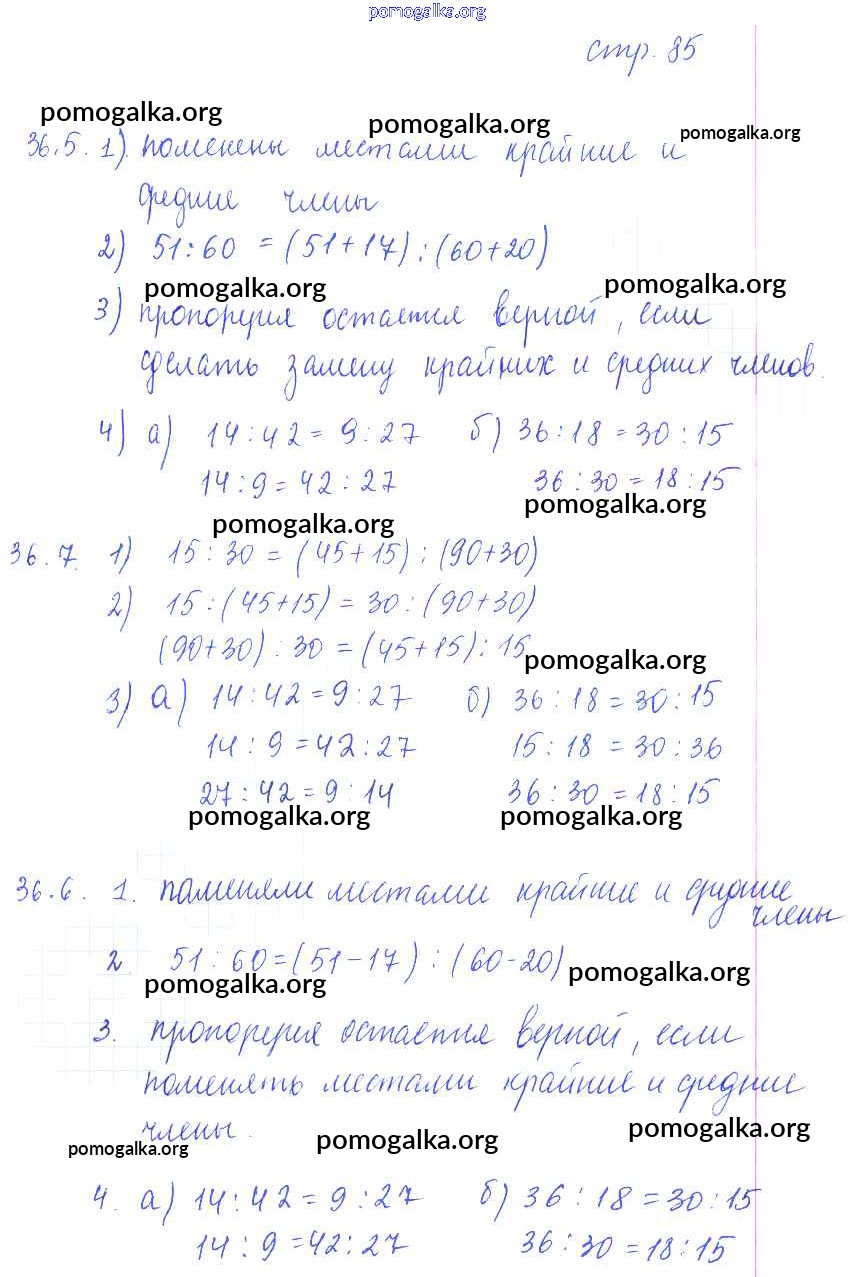 pomogalka.org
стр. 85
pomogalka.org pomogalka.org pomogalka.org
36.5. 1). поменены местами крайние и
средние члены
2) 51:60 = (51+17):(60+20)
pomogalka.org pomogalka.org
3) пропорция остается верной, если
сделать замену крайних и средних членов.
4) а) 14:42=9:27 б) 36:18=30:15
14:9=42:27 36:30=18:15
pomogalka.org pomogalka.org
36.7. 1) 15:30=(45+15):(90+30)
2) 15:(45+15)=30:(90+30)
(90+30):30=(45+15):15
pomogalka.org
3) а) 14:42=9:27 б) 36:18=30:15
14:9=42:27 15:18=30:36
27:42=9:14 36:30=18:15
pomogalka.org pomogalka.org
36.6. 1. поменяли местами крайние и средние
члены
2 51:60=(51-17):(60-20)
pomogalka.org pomogalka.org
3. пропорция остается верной, если
поменять местами крайние и средние
члены.
pomogalka.org pomogalka.org pomogalka.org
4. а) 14:42=9:27 б) 36:18=30:15
14:9=42:27 36:30=18:15